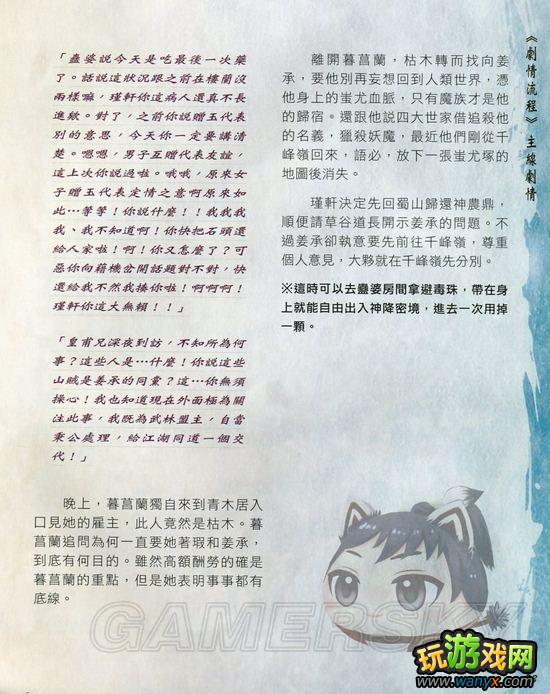 《劇情流程》主線劇情
「蠱婆說今天是吃最後一次藥
了。話說這狀況跟之前在樓蘭沒
兩樣嘛，瑾軒你這病人還真不長
進欸。對了，之前你說贈玉代表
別的意思，今天你一定要講清
楚。嗯嗯，男子互贈代表友誼，
這上次你說過啦。哦哦，原來女
子贈玉代表定情之意啊原來如
此…等等！你說什麼！！我我我
我、我不知道啊！你快把石頭還
給人家啦！啊！你又怎麼了？可
惡你向藉機岔開話題對不對，快
還給我不然我揍你啦！啊啊啊！
瑾軒你這大無賴！！」
「皇甫兄深夜到訪，不知所為何
事？這些人是…什麼！你說這些
山賊是姜承的同黨？這…你無須
操心！我也知道現在外面極為關
注此事，我既為武林盟主，自當
秉公處理，給江湖同道一個交
代！」
晚上，暮菖蘭獨自來到青木居入
口見她的雇主，此人竟然是枯木。暮
菖蘭追問為何一直要她著瑕和姜承，
到底有何目的。雖然高額酬勞的確是
暮菖蘭的重點，但是她表明事事都有
底線。
離開暮菖蘭，枯木轉而找向姜
承，要他別再妄想回到人類世界，憑
他身上的蚩尤血脈，只有魔族才是他
的歸宿。還跟他說四大世家借追殺他
的名義，獵殺妖魔，最近他們剛從千
峰嶺回來，語必，放下一張蚩尤塚的
地圖後消失。
瑾軒決定先回蜀山歸還神農鼎，
順便請草谷道長開示姜承的問題。不
過姜承卻執意要先前往千峰嶺，尊重
個人意見，大夥就在千峰嶺先分別。
※這時可以去蠱婆房間拿避毒珠，帶在身
上就能自由出入神降密境，進去一次用掉
一顆。
GAMERSKY
玩游戏网
www.wanyx.com